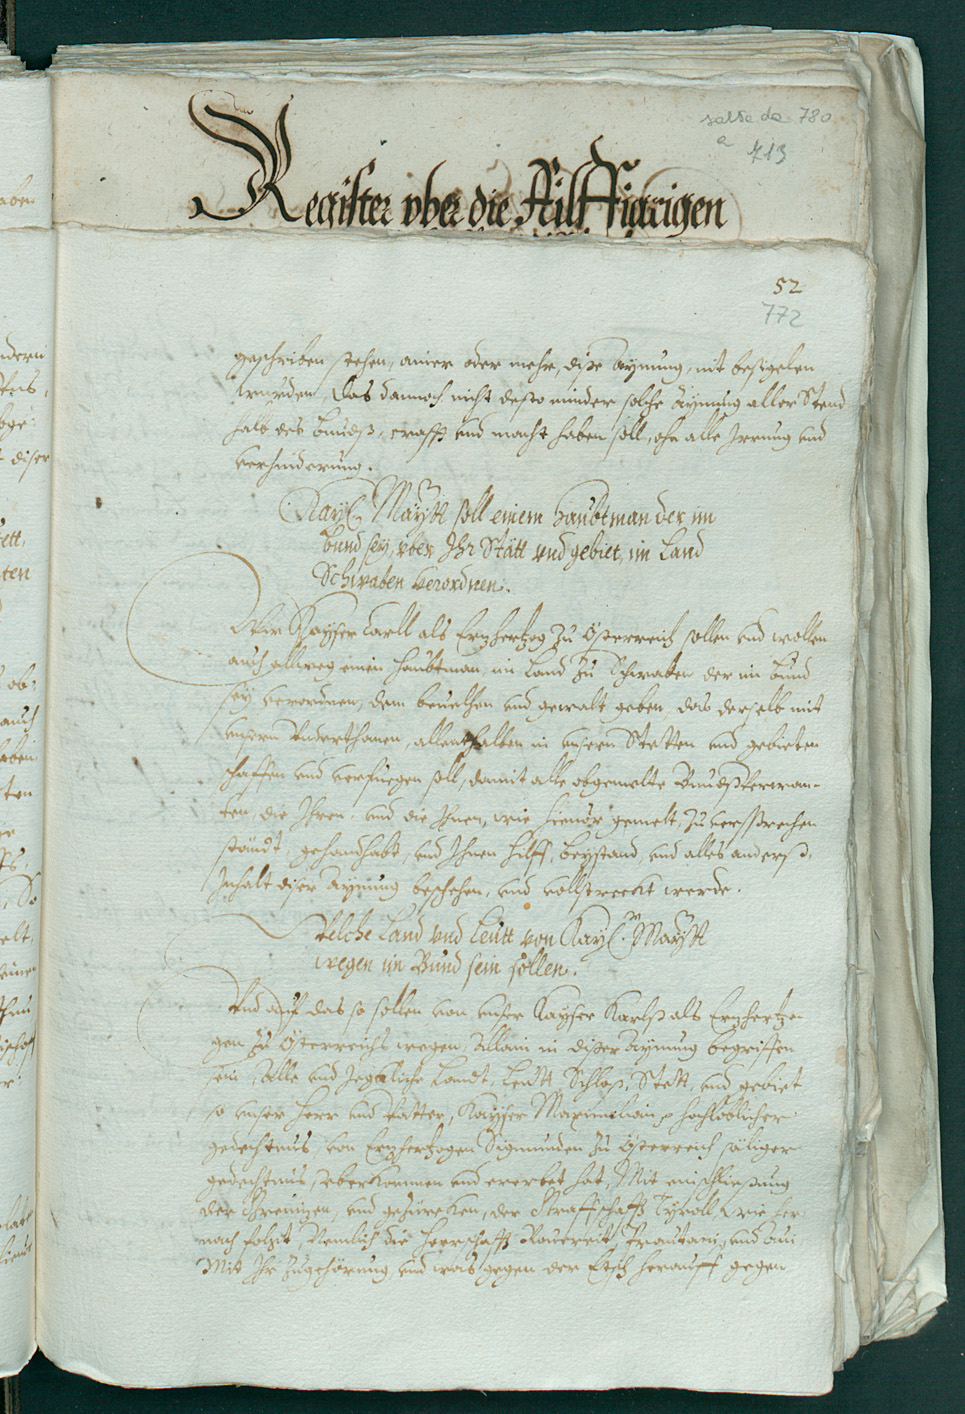 salta da 780
a 713
Register vber die Ailff Jarigen
52
772
geschriben stehen, ainer oder mehr, dise Aynung, nit besigelen
wurden, Das dannoch nicht desto minder solche Aynung aller Stend
halb des Bundß, crafft vnd macht haben soll, ohn alle Irrung vnd
verhinderung.
Kay. Maytt soll einem Haubtman der im
Bund sey, vber Ihr Stätt vnd gebiet, im Land
Schwaben verordnen.
Wir Kayser Carll als Ertzhertzog zu Österreich sollen vnd wollen
auch allweg einen Haubtman, im Land zu Schwaben der im Bund
sey verordnen, dem beuelhen vnd gewalt geben, das derselb mit
vnsern Vnderthanen, allenthalben in vnsern Stetten vnd gebieten
schaffen vnd verfuegen soll, damit alle obgemelte Bundßverwan-
ten, die Ihren, vnd die Ihnen, wie hieuor gemelt, zu versprechen
ständt, gehandhabt, vnd Ihnen hilff, beystand, vnd alles anderß,
Inhalt diser Aynung beschehen, vnd vollstreckt werde.
Welche Land vnd Leutt von Kay. Maytt
wegen im Bund sein sollen.
Vnd auf das so sollen von vnser Kayser Karlß als Ertzhertzo-
gen zu Österreichs wegen, Allain in diser Aynung begriffen
sein, Alle vnd Jegkliche Landt, Leütt Schloß, Stett, vnd gebiet
so vnser Herr vnd Vatter, Kayser Maximilian hochloblicher
gedechtnus, von Ertzhertzogen Sigmunden zu Österreich säliger
gedechtnus, vberkommen vnd ererbet hat, Mit einschließung
der Grenitzen, vnd gezürcken, der Graffschafft Tyroll wie her
nach folgt, Nemlich die Herrschafft Rouereit, Trautani, vnd Aui
Mit Ihr zugehörung vnd was gegen der Etsch herauff gegen